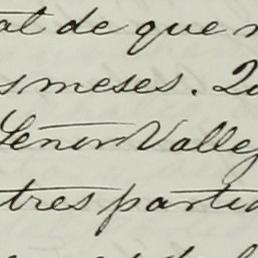 al de que
s meses.
Señor Valle
tres parti